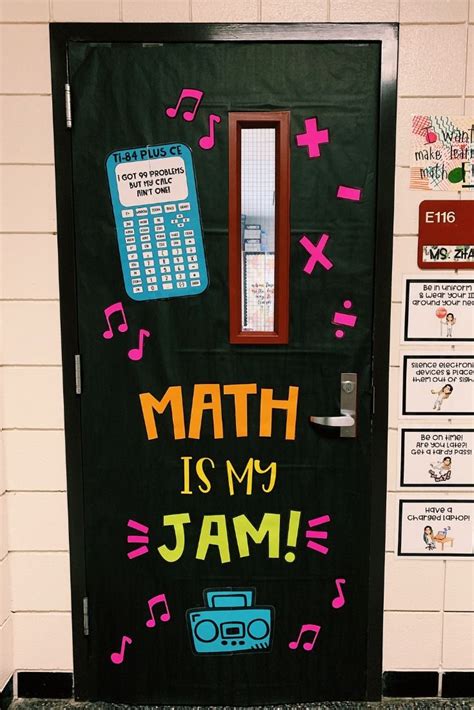 TI-84 PLUS CE
I GOT 99 PROBLEMS
BUT MY CALC
AIN'T ONE!
MATH
IS MY
JAM!
I want
make
E116
MS. ZHA
Be in uniform
& wear your ID
around your ne
Silence electron
devices & place
them out of sigh
Be on time!
Are you late?!
Get a tardy pass!
Have a
charged laptop!